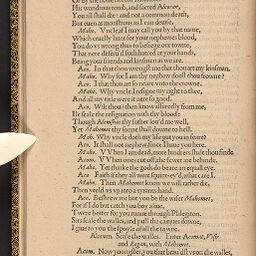 His wondrous tomb, and sacred Alcaron,
You all shall die: and not a common death,
But euen as monstrous as I can deuise.
Mahu. Vncle, if I may call you by that name,
Which cruelly hunt for your nephewes blood,
You do vs wrong thus to besiege our towne,
That nere deseru'd such hatred at your hands,
Being your friends and kinsmen as we are.
Aco. In that thou wrongst me that thou art my kinsman.
Mahu. Why for I am thy nephew doest thou frowne?
Aco. I that thou art so neare vnto the crowne.
Mahu. Why vncle I resigne my right to thee,
And all my title were it nere so good.
Aco. Wilt thou? then know assuredly from me,
Ile seale the resignation with thy blood:
Though Alemshae thy father lou'd me well,
Yet Mahomet thy sonne shall downe to hell.
Mah. Why vncle doth my life put you in feare?
Aco. It shall not nephew since I haue you here.
Mahu. When I am dead, more hundreds shalt thou finde.
Acom. When ones cut off the fewer are behinde.
Mahu. Yet thinke the gods do beare an equall eye.
Aco. Faith if they all were squint-ey'd, what care I.
Mahu. Then Mahomet know we will rather die,
Then yeeld vs vp into a tyrants hand.
Aco. Beshrew me but you be the wiser Mahomet,
For if I do but catch you boy aliue,
T'were better for you runne through Phlegiton.
Sirs scale the walles, and pull the caitiues downe,
I giue to you the spoyle of all the towne.
Alarum. Scale the walles. Enter Acomet, Visir
and Regan, with Mahomet.
Acom. Now yoongster, you that brau'dst vs on the walles,